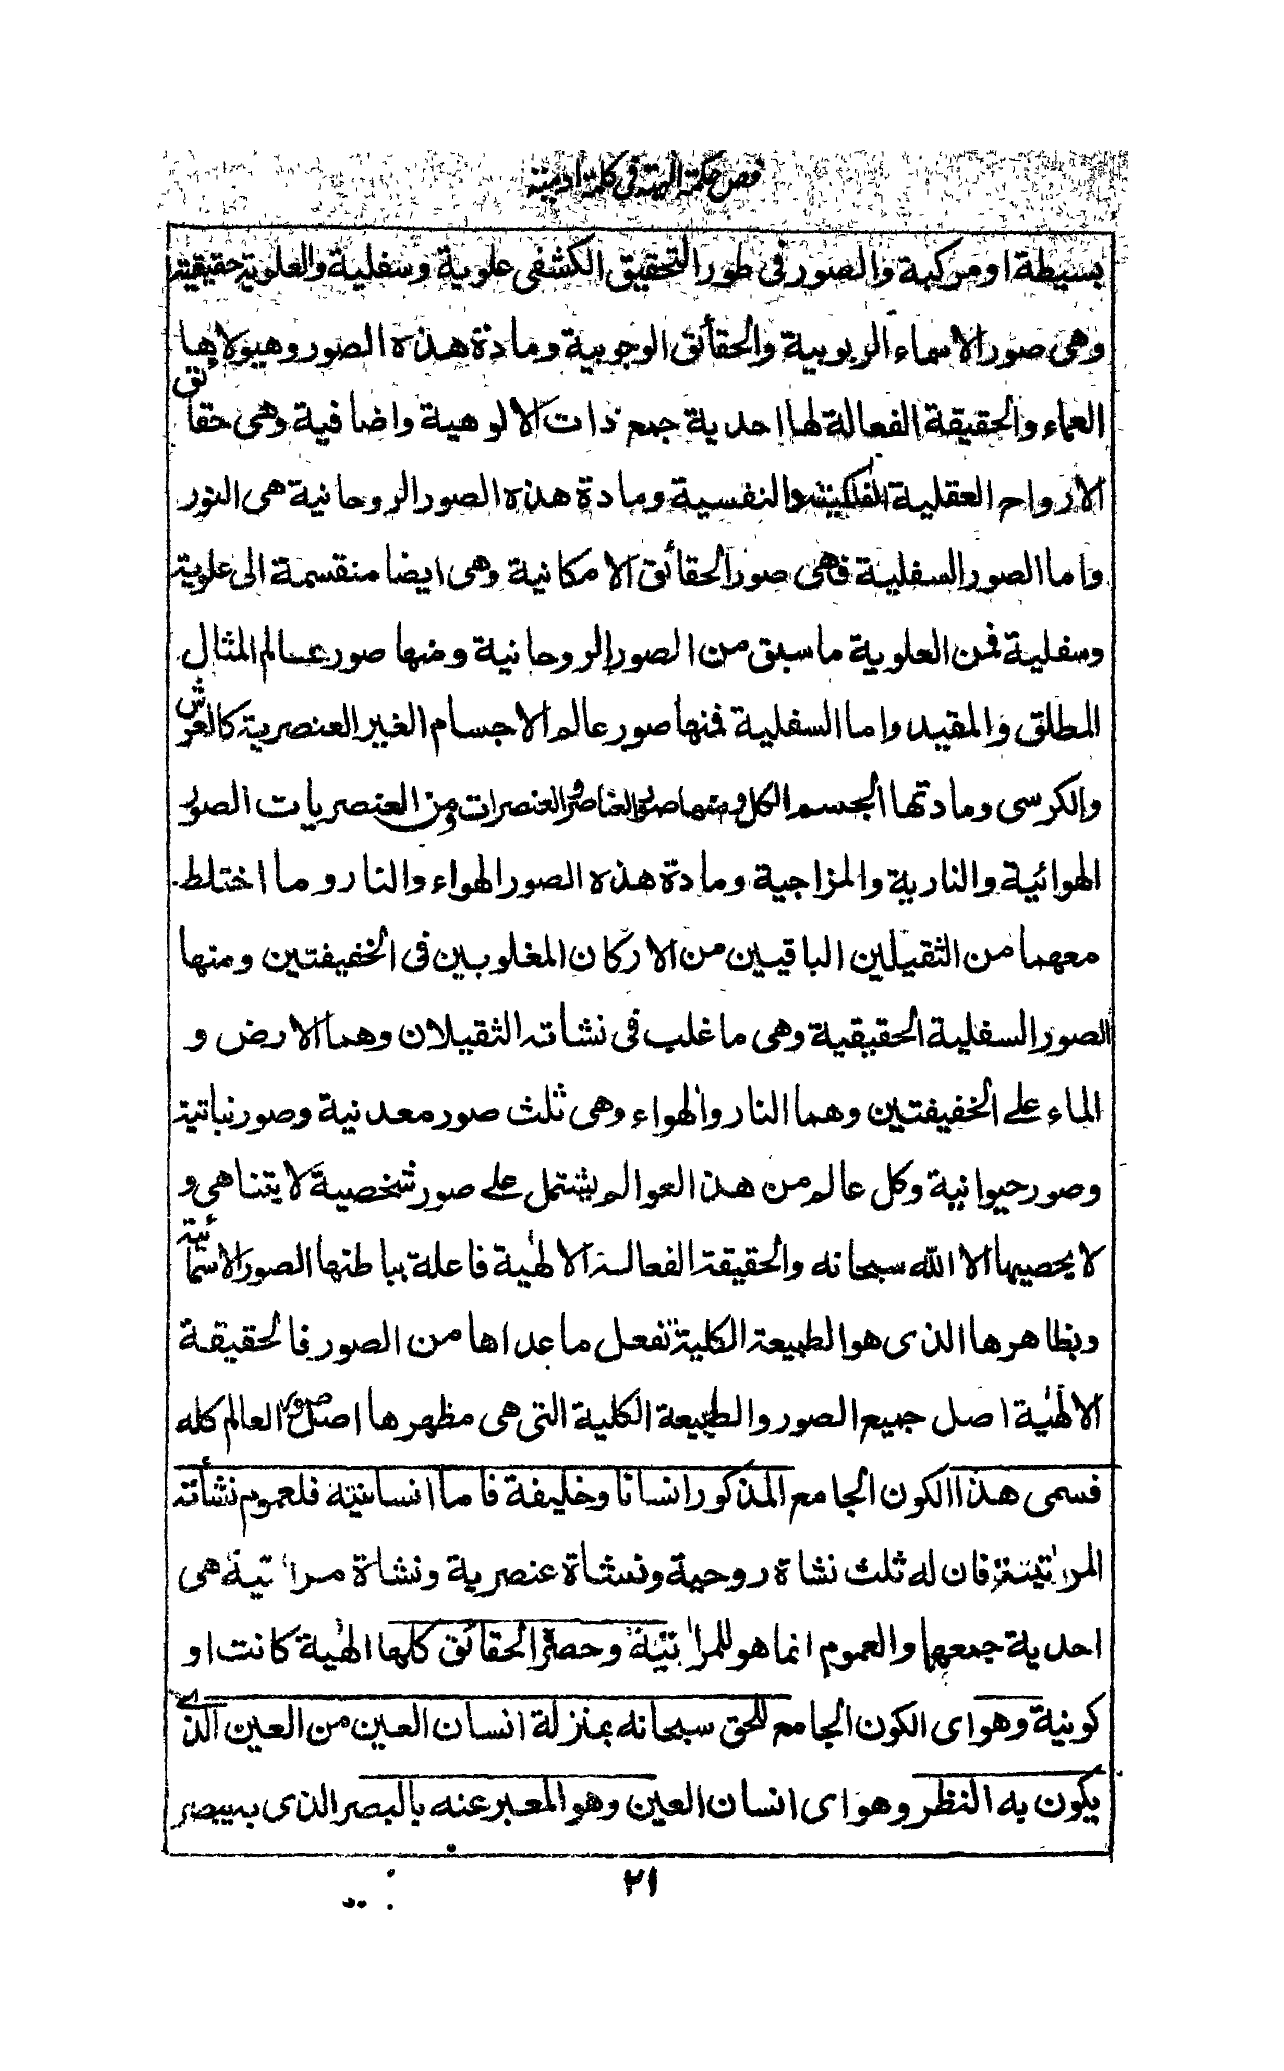 فص حكمة الهية فى كلمة ادمية
بسيطة او مركبة والصور فى طور التحقيق الكشفى علوية وسفلية والعلوية حقيقية
وهى صور الاسماء الربوبية والحقائق الوجوبية ومادة هذه الصور وهيولاها
العماء والحقيقة الفعالة لها احدية جمع ذات الالوهية واضافية وهى حقائق
الارواح العقلية الفلكية والنفسية ومادة هذه الصور الروحانية هى النور
واما الصور السفلية فهى صور الحقائق الامكانية وهى ايضا منقسمة الى علوية
وسفلية فمن العلوية ما سبق من الصور الروحانية ومنها صور عالم المثال
المطلق والمقيد واما السفلية فمنها صور عالم الاجسام الغير العنصرية كالعرش
والكرسى ومادتها الجسم الكل ومنها صور العناصر والعنصرات ومن العنصريات الصور
الهوائية والنارية والمزاجية ومادة هذه الصور الهواء والنار وما اختلط
معهما من الثقيلين الباقيين من الاركان المغلوبين فى الخفيفتين ومنها
الصور السفلية الحقيقية وهى ما غلب فى نشأته الثقيلان وهما الارض و
الماء على الخفيفتين وهما النار والهواء وهى ثلث صور معدنية وصور نباتية
وصور حيوانية وكل عالم من هذ العوالم يشتمل على صور شخصية لا يتناهى و
لا يحصيها الا الله سبحانه والحقيقة الفعالة الالهية فاعلة بباطنها الصور الاسمائية
وبظاهرها الذى هو الطبيعة الكلية تفعل ما عداها من الصور فالحقيقة
الالهية اصل جميع الصور والطبيعة الكلية التى هى مظهرها اصل صور العالم كله
فسمى هذا الكون الجامع المذكور انسانا وخليفة فاما انسانيته فلعموم نشأته
المراتية فان له ثلث نشاة روحية ونشاة عنصرية ونشاة مراتية هى
احدية جمعهما والعموم انما هو للمراتية وحصره الحقائق كلها الهية كانت او
كونية وهو اى الكون الجامع للحق سبحانه بمنزلة انسان العين من العين الذى
يكون به النظر وهو اى انسان العين وهو المعبر عنه بالبصر الذى به يبصر
٢١